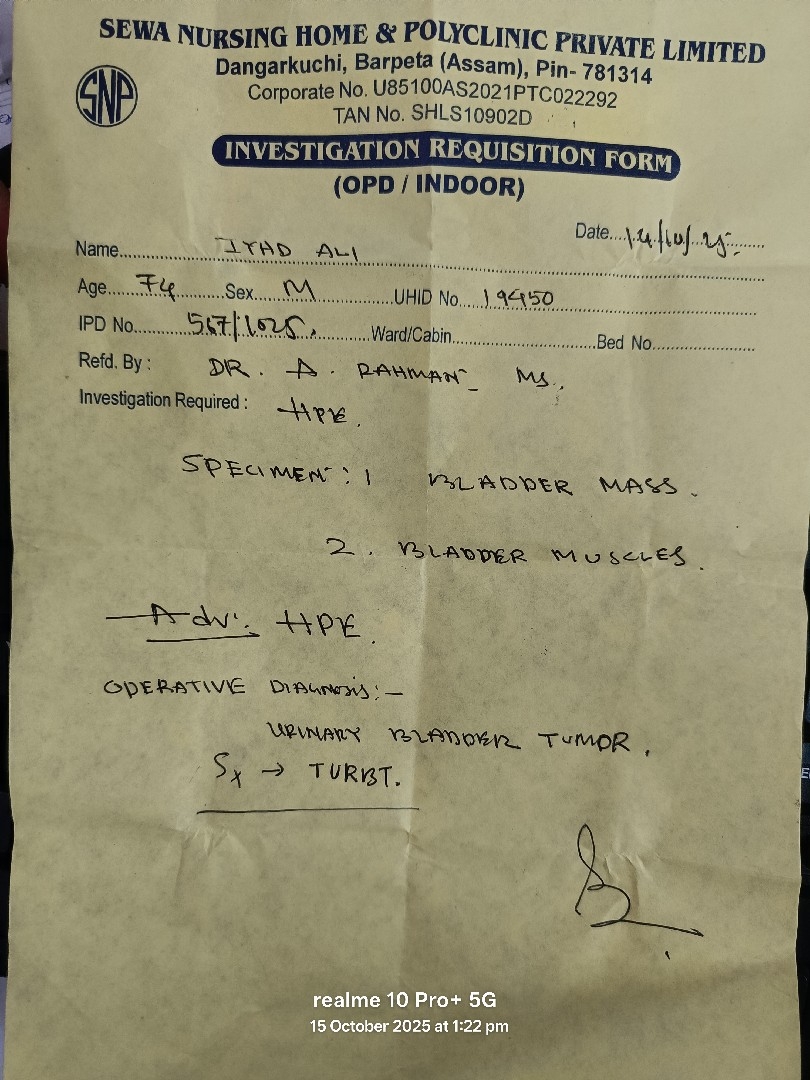 SEWA NURSING HOME & POLYCLINIC PRIVATE LIMITED
SNP
Dangarkuchi, Barpeta (Assam), Pin- 781314
Corporate No. U85100AS2021PTC022292
TAN No. SHLS10902D
INVESTIGATION REQUISITION FORM
(OPD / INDOOR)
Date...14/10/25
Name... ALI
Age...74...Sex...M...UHID No...19450
IPD No...567/1025...Ward/Cabin...Bed No...
Refd. By : DR. A. RAHMAN MS.,
Investigation Required : HPE.
SPECIMEN : 1 BLADDER MASS.
2. BLADDER MUSCLES.
Adv: HPE.
OPERATIVE DIAGNOSIS :-
URINARY BLADDER TUMOR.
Sx → TURBT.
realme 10 Pro+ 5G
15 October 2025 at 1:22 pm